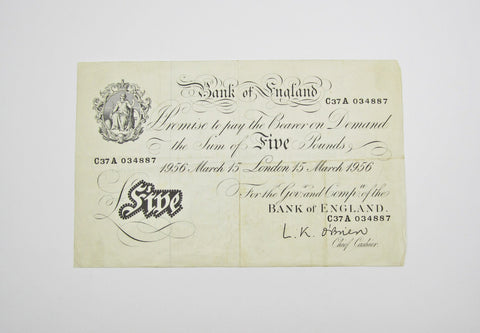 Bank of England
C37A 034887
Promise to pay the Bearer on Demand
the Sum of Five Pounds
C37A 034887
1956 March 15 London 15 March 1956
For the Govr. and Compa. of the
BANK OF ENGLAND.
C37A 034887
£ Five
L. K. O'Brien
Chief Cashier.